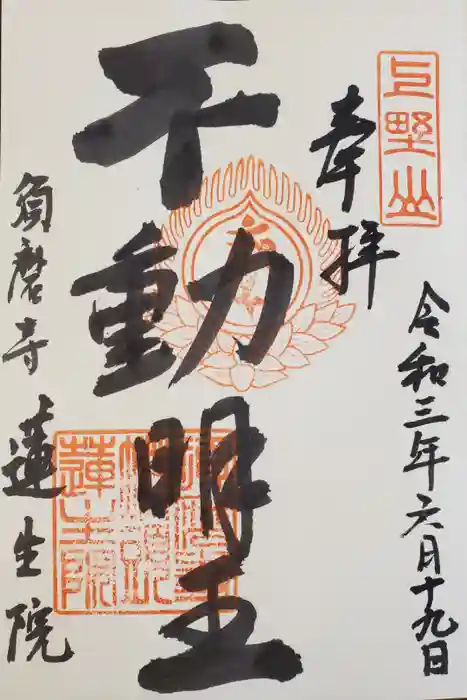 令和三年六月十九日
上野山
奉拝
不動明王
蓮生院
須磨寺 蓮生院